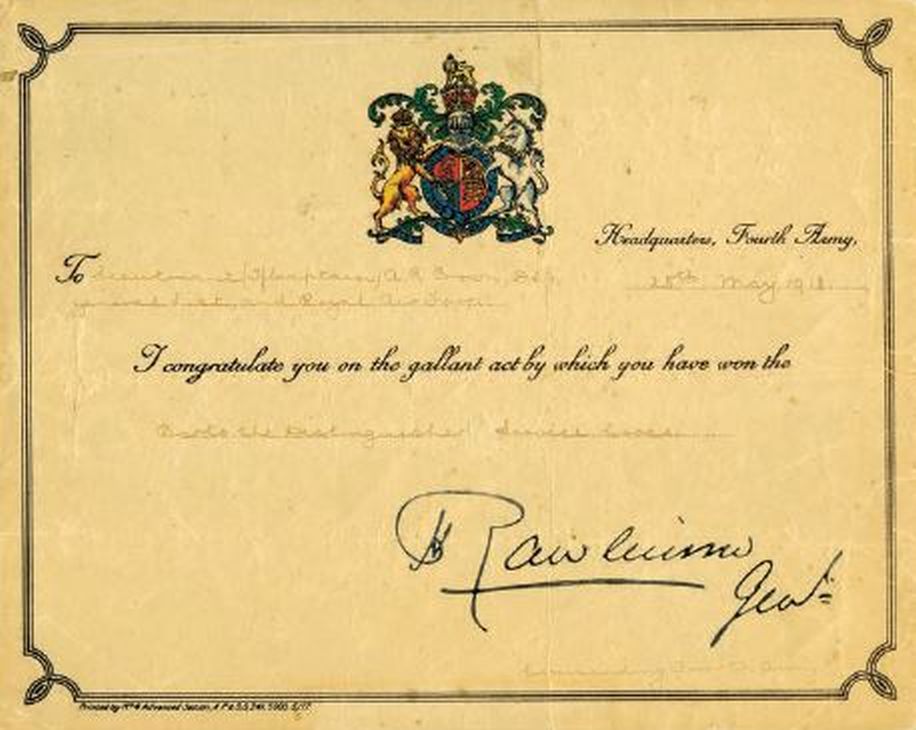 Headquarters, Fourth Army,
To Lieutenant (T/Captain) A.R. Brown, D.S.C.
28th May 1918
General List, and Royal Air Force.
I congratulate you on the gallant act by which you have won the
Bar to the Distinguished Service Cross.
H Rawlinson
Genl
Commanding Fourth Army
Printed by No 4 Advanced Section, A.P. & S.S.